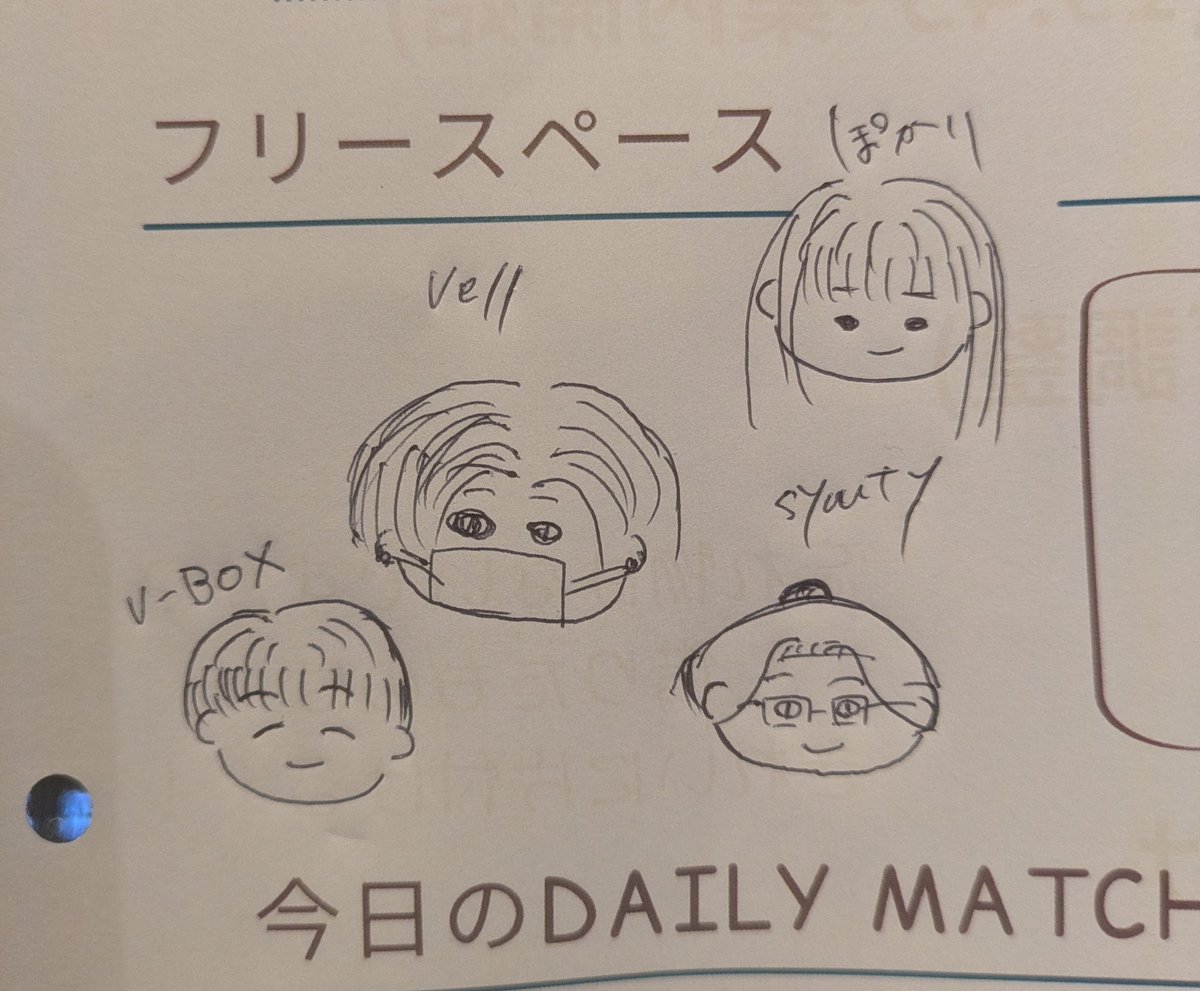 フリースペース
ぽかり
vell
syuty
v-BOX
今日のDAILY MATCH